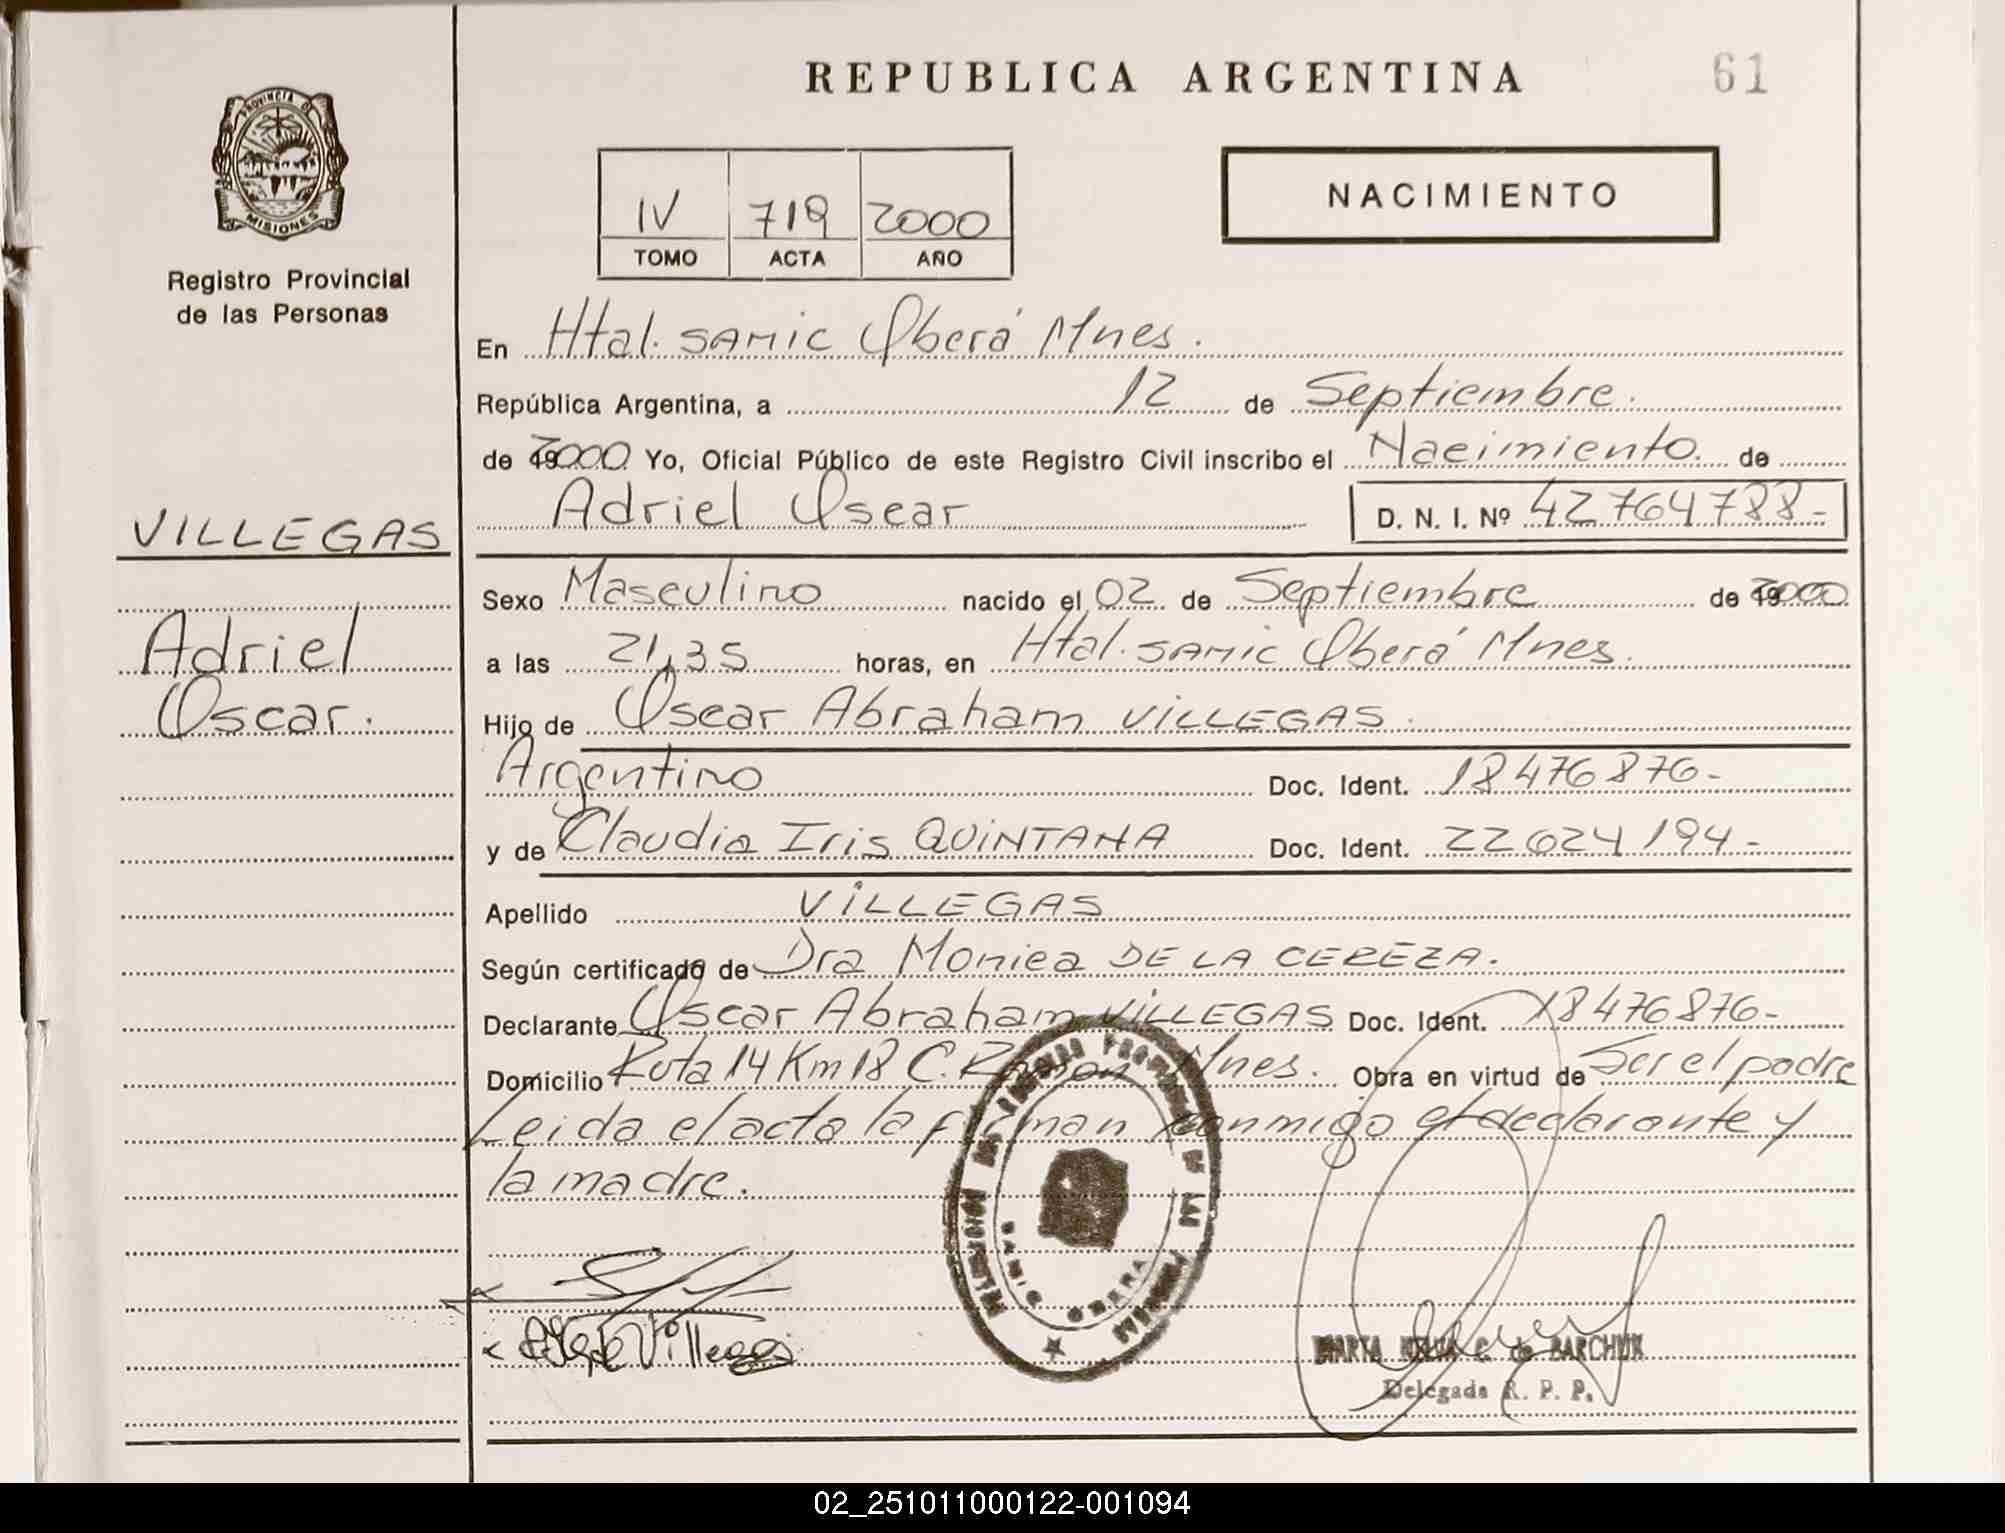 REPUBLICA ARGENTINA
61
PROVINCIA DE
MISIONES
Registro Provincial
de las Personas
IV 719 2000
TOMO ACTA AÑO
NACIMIENTO
En Htal. SAMIC Oberá Mnes.
República Argentina, a 12 de Septiembre.
de 2000 Yo, Oficial Público de este Registro Civil inscribo el Nacimiento. de
Adriel Oscar D. N. I. Nº 42764788-
VILLEGAS
Adriel
Oscar.
Sexo Masculino nacido el 02 de Septiembre de 2000
a las 21,35 horas, en Htal. SAMIC Oberá Mnes.
Hijo de Oscar Abraham VILLEGAS.
Argentino Doc. Ident. 18476876-
y de Claudia Iris QUINTANA Doc. Ident. 22624194-
Apellido VILLEGAS
Según certificado de Dra Monica DE LA CEREZA.
Declarante Oscar Abraham VILLEGAS Doc. Ident. 18476876-
Domicilio Ruta 14 Km 18 C. Ramon Mnes. Obra en virtud de Ser el padre
Leida el acta la firman conmigo el declarante y
la madre.
Villegas
MARTA C. de BARCHUK
Delegada R. P. P.
02_251011000122-001094